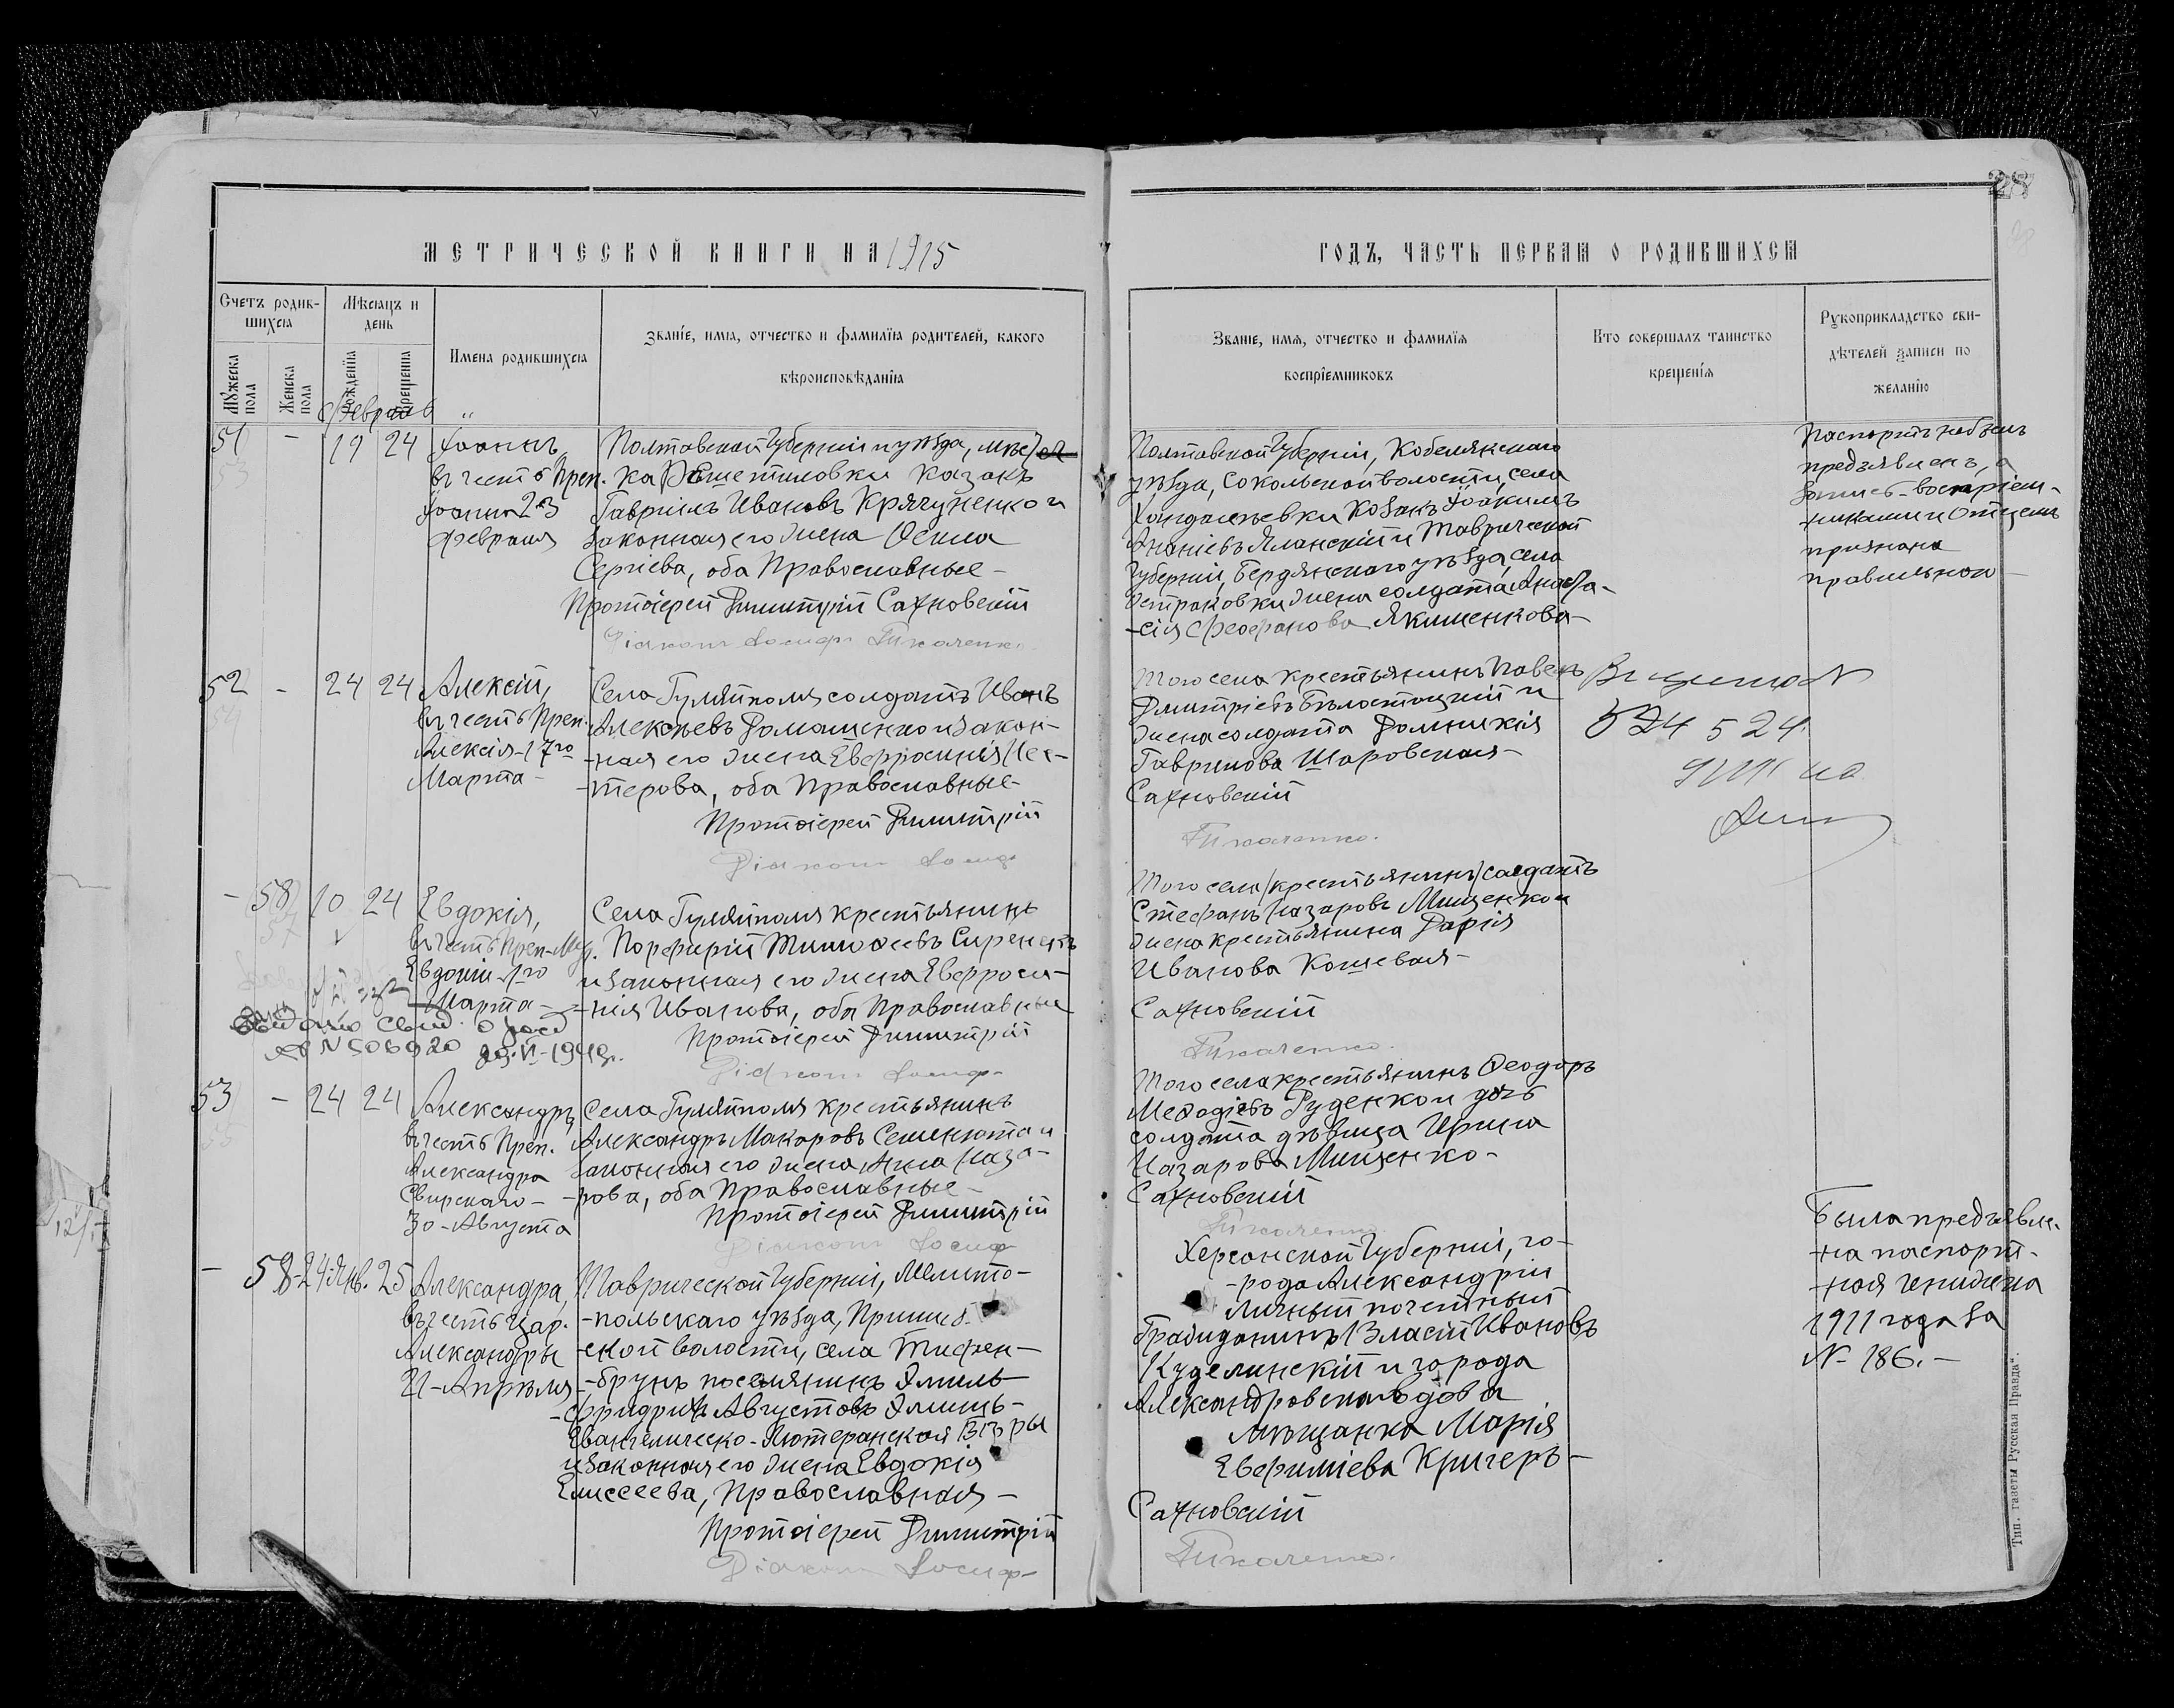 28
МЕТРИЧЕСКОЙ КНИГИ НА 1915
Счетъ родив-
шихся
Мѣсяцъ и
день
Мужеска
пола
Женска
пола
рожденія
крещенія
Имена родившихся
Званіе, имя, отчество и фамилія родителей, какого
вѣроисповѣданія
Февраль
51 - 19 24
Іоаннъ,
въ честь Преп.
Іоанна 23
Февраля
Полтавской Губерніи и уѣзда, мѣстеч-
ка Решетиловки казакъ
Гавріилъ Ивановъ Крячуненко и
законная его жена
Сергіева, оба Православные -
Протоіерей Димитрій Сахновскій
Діаконъ Іосифъ Ткаченко.
52 - 24 24
Алексій,
въ честь Преп.
Алексія - 17го
Марта -
Села Гуляйполя солдатъ Иванъ
Алексѣевъ Домашенко и закон-
-ная его жена Евфросинія Нес-
-терова, оба Православные -
Протоіерей Димитрій
Діаконъ Іосифъ
- 58 10 24
Евдокія,
въ честь Преп.-Муч.
Евдокіи - 1го
Марта -
Села Гуляйполя крестьянинъ
Порфирій Тимоѳеевъ
и законная его жена Евфроси-
-нія Иванова, оба Православные
Протоіерей Димитрій
Діаконъ Іосифъ
Выдано свид. о рожд
N 506920 29.VI-194
53 - 24 24
Александръ,
въ честь Преп.
Александра
Свирскаго -
30 - Августа
Села Гуляйполя крестьянинъ
Александръ Макаровъ Семенюта и
законная его жена Анна Наза-
-рова, оба Православные -
Протоіерей Димитрій
Діаконъ Іосифъ
- 58 - 24 Янв. 25
Александра,
въ честь Цар.
Александры
21 - Апрѣля -
Таврической Губерніи, Мелито-
-польскаго уѣзда, Пришиб-
-ской волости, села Тифен-
-брунъ поселянинъ Эмиль
-Фридрихъ Августовъ
Евангелическо-Лютеранской Вѣры
и законная его жена Евдокія
Елисеева, Православная -
Протоіерей Димитрій
Діаконъ Іосифъ
ГОДЪ, ЧАСТЬ ПЕРВАЯ О РОДИВШИХСЯ
Званіе, имя, отчество и фамилія
воспріемниковъ
Кто совершалъ таинство
крещенія
Рукоприкладство сви-
дѣтелей записи по
желанію
Полтавской Губерніи, Кобелякскаго
уѣзда, Сокольской волости, села
Хандалеевки Козакъ Іоакимъ
Ананіевъ Яланскій и Таврической
Губерніи, Бердянскаго уѣзда, села
жена солдата Анаста-
-сія Феофанова Якименкова -
Паспортъ не былъ
предъявленъ, а
запись воспріем-
-никами и Отцемъ
признана
правильной -
Того села крестьянинъ Павелъ
Димитріевъ Бѣлостоцкій и
жена солдата Домникія
Гаврилова Шаровская -
Сахновскій
Ткаченко.
524 524
Того села /крестьянинъ/ солдатъ
Стефанъ Назаровъ Мищенко и
жена крестьянина Дарія
Иванова Кошевая -
Сахновскій
Ткаченко.
Того села крестьянинъ Ѳеодоръ
Меѳодіевъ Руденко и дочь
солдата дѣвица Ирина
Назарова Мищенко -
Сахновскій
Ткаченко.
Херсонской Губерніи, го-
-рода Александріи
личный почетный
Гражданинъ Власій Ивановъ
Куделинскій и города
Александровска вдова
мѣщанка Марія
Евфиміева Кригеръ -
Сахновскій
Ткаченко.
Была предъявле-
-на паспорт-
-ная книжка
1911 года за
№ 186. -
Тип. газеты „Русская Правда“.